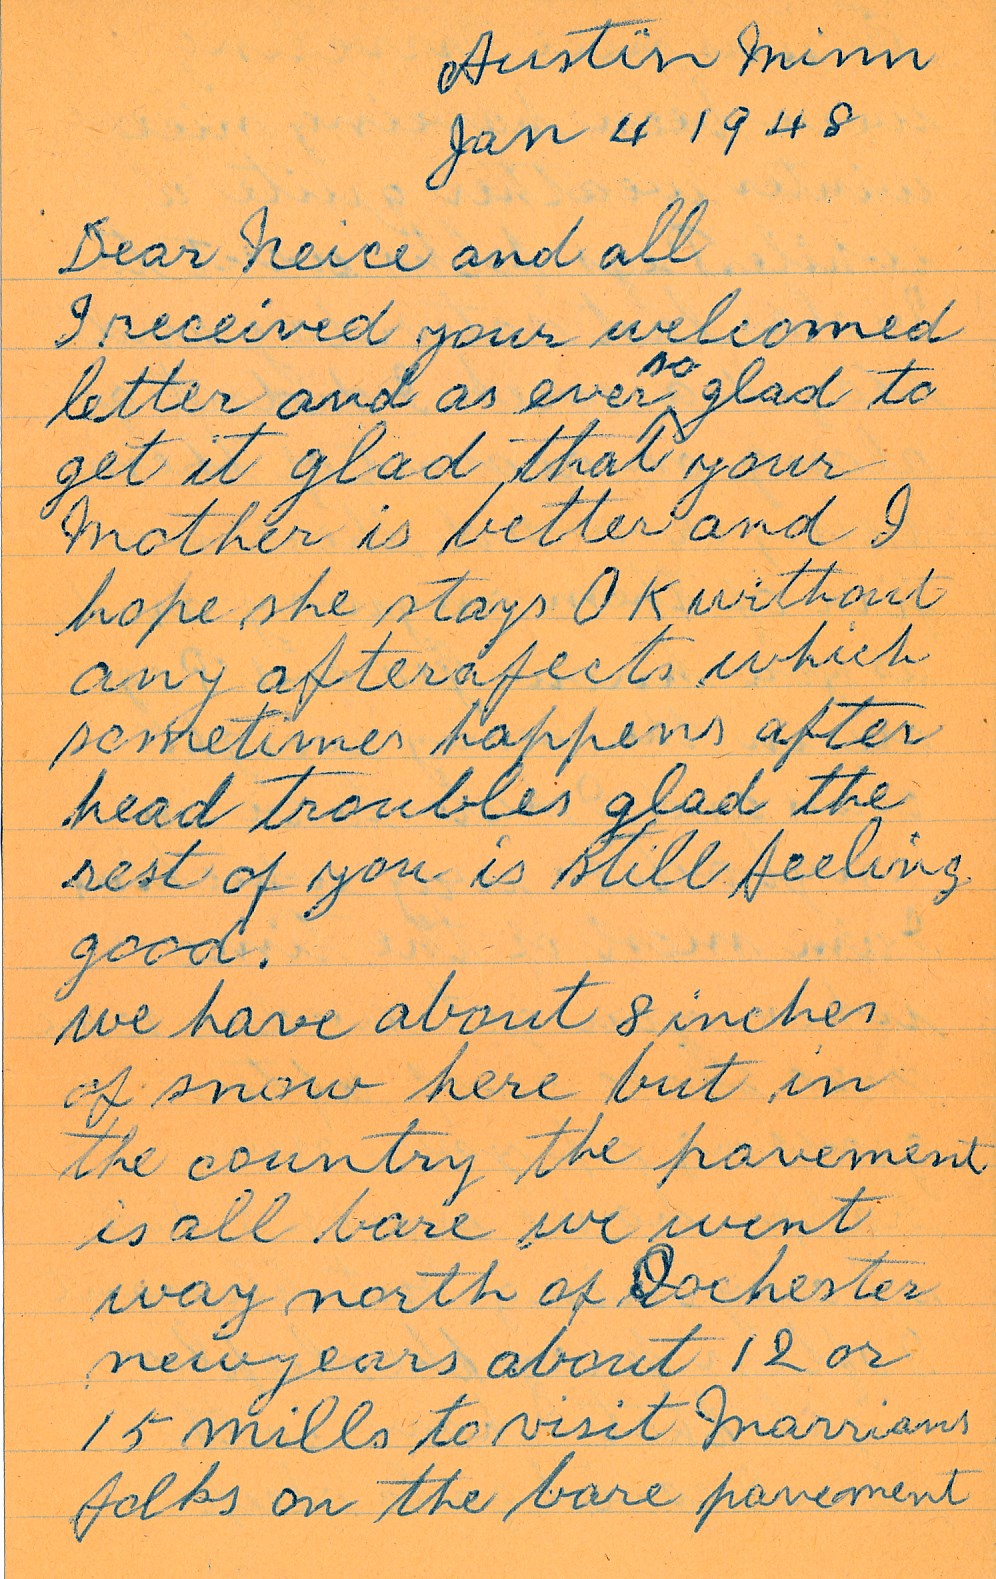 Austin Minn
Jan 4 1948
Dear Neice and all
I received your welcomed
letter and as ever so glad to
get it glad that your
Mother is better and I
hope she stays OK without
any afterafects which
sometimes happens after
head troubles glad the
rest of you is still feeling
good.
we have about 8 inches
of snow here but in
the country the pavement
is all bare we went
way north of Rochester
newyears about 12 or
15 mills to visit Marrians
folks on the bare pavement